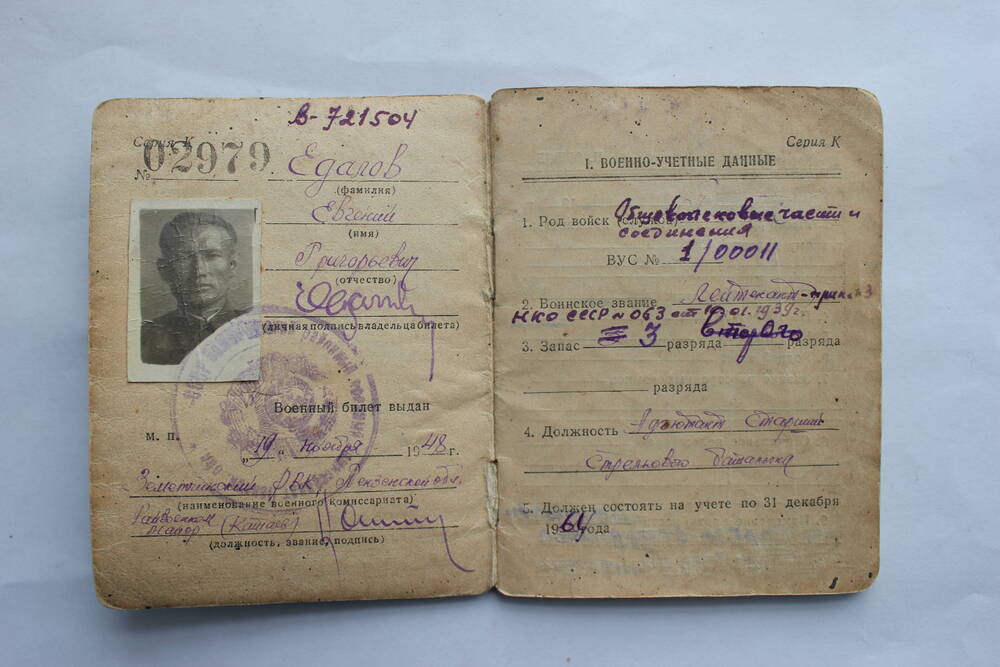 В-721504
Серия К
№ 02979
Едалов
(фамилия)
Евгений
(имя)
Григорьевич
(отчество)
(личная подпись владельца билета)
Военный билет выдан
М. П.
„19„ ноября 1948 г.
Земетчинский РВК, Пензенской обл.
(наименование военного комиссариата)
Райвоенком
майор (Катаев)
(должность, звание, подпись)
Серия К
I. ВОЕННО-УЧЕТНЫЕ ДАННЫЕ
1. Род войск (службы) Общевойсковые части и
соединения
ВУС № 1/00011
2. Воинское звание Лейтенант - приказ
НКО СССР № 063 от 10.01.1939 г.
3. Запас 3 разряда второго разряда
разряда
4. Должность Адъютант старший
стрелкового батальона
5. Должен состоять на учете по 31 декабря
1964 года